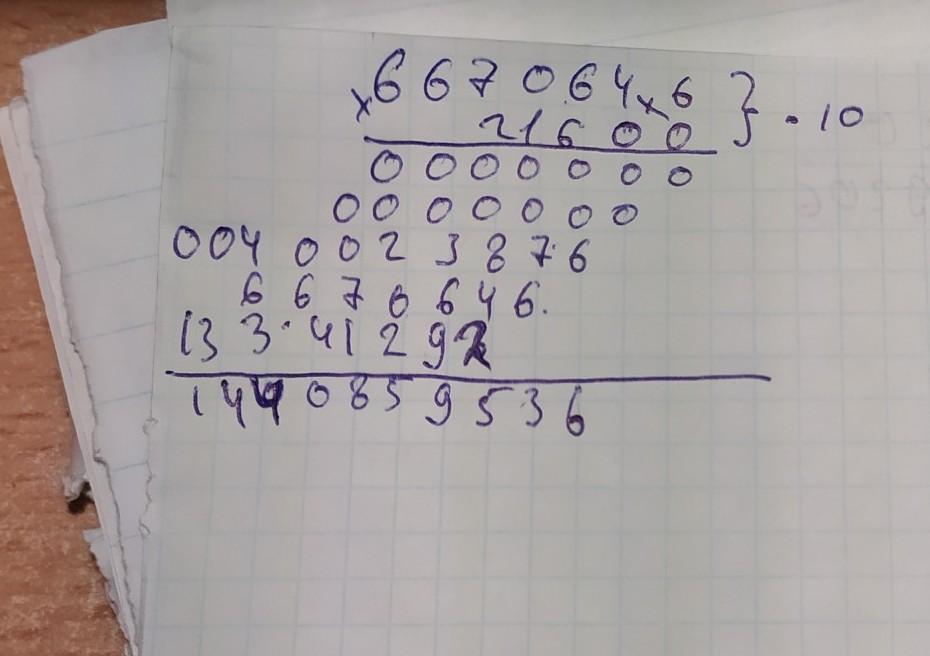 ×667064×6 } · 10
21600
0000000
0000000
0040023876
6670646.
133·41292
1440859536